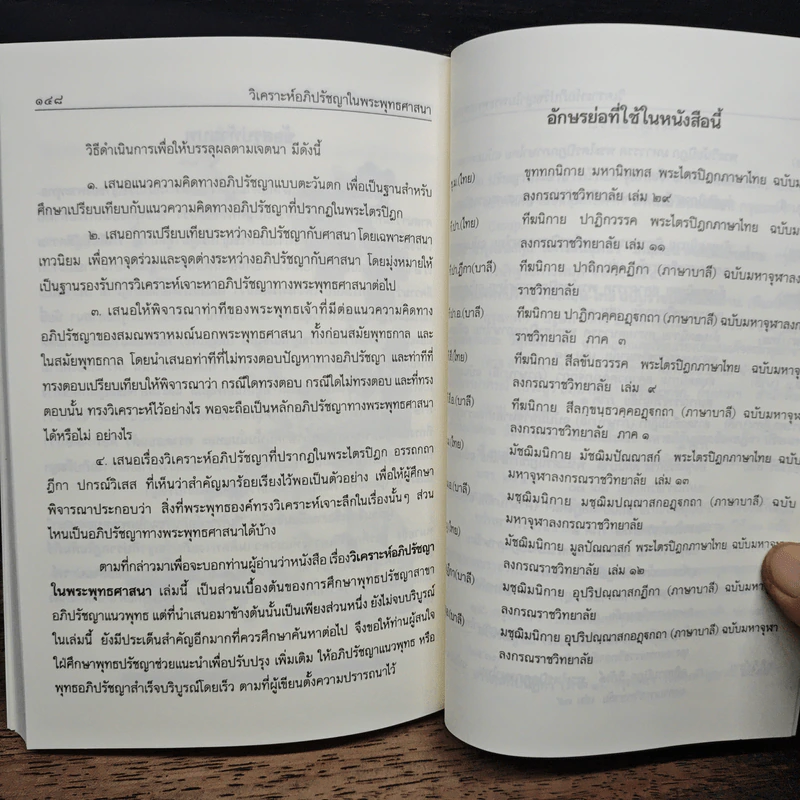 ๑๔๘
วิเคราะห์อภิปรัชญาในพระพุทธศาสนา
วิธีดำเนินการเพื่อให้บรรลุผลตามเจตนา มีดังนี้
๑. เสนอแนวความคิดทางอภิปรัชญาแบบตะวันตก เพื่อเป็นฐานสำหรับ
ศึกษาเปรียบเทียบกับแนวความคิดทางอภิปรัชญาที่ปรากฏในพระไตรปิฎก
๒. เสนอการเปรียบเทียบระหว่างอภิปรัชญากับศาสนา โดยเฉพาะศาสนา
เทวนิยม เพื่อหาจุดร่วมและจุดต่างระหว่างอภิปรัชญากับศาสนา โดยมุ่งหมายให้
เป็นฐานรองรับการวิเคราะห์เจาะหาอภิปรัชญาทางพระพุทธศาสนาต่อไป
๓. เสนอให้พิจารณาท่าทีของพระพุทธเจ้าที่มีต่อแนวความคิดทาง
อภิปรัชญาของสมณพราหมณ์นอกพระพุทธศาสนา ทั้งก่อนสมัยพุทธกาล และ
ในสมัยพุทธกาล โดยนำเสนอท่าทีที่ไม่ทรงตอบปัญหาทางอภิปรัชญา และท่าทีที่
ทรงตอบเปรียบเทียบให้พิจารณาว่า กรณีใดทรงตอบ กรณีใดไม่ทรงตอบ และที่ทรง
ตอบนั้น ทรงวิเคราะห์ไว้อย่างไร พอจะถือเป็นหลักอภิปรัชญาทางพระพุทธศาสนา
ได้หรือไม่ อย่างไร
๔. เสนอเรื่องวิเคราะห์อภิปรัชญาที่ปรากฏในพระไตรปิฎก อรรถกถา
ฎีกา ปกรณ์วิเสส ที่เห็นว่าสำคัญมาร้อยเรียงไว้พอเป็นตัวอย่าง เพื่อให้ผู้ศึกษา
พิจารณาประกอบว่า สิ่งที่พระพุทธองค์ทรงวิเคราะห์เจาะลึกในเรื่องนั้นๆ ส่วน
ไหนเป็นอภิปรัชญาทางพระพุทธศาสนาได้บ้าง
ตามที่กล่าวมาเพื่อจะบอกท่านผู้อ่านว่าหนังสือ เรื่องวิเคราะห์อภิปรัชญา
ในพระพุทธศาสนา เล่มนี้ เป็นส่วนเบื้องต้นของการศึกษาพุทธปรัชญาสาขา
อภิปรัชญาแนวพุทธ แต่ที่นำเสนอมาข้างต้นนั้นเป็นเพียงส่วนหนึ่ง ยังไม่จบบริบูรณ์
ในเล่มนี้ ยังมีประเด็นสำคัญอีกมากที่ควรศึกษาค้นหาต่อไป จึงขอให้ท่านผู้สนใจ
ใฝ่ศึกษาพุทธปรัชญาช่วยแนะนำเพื่อปรับปรุง เพิ่มเติม ให้อภิปรัชญาแนวพุทธ หรือ
พุทธอภิปรัชญาสำเร็จบริบูรณ์โดยเร็ว ตามที่ผู้เขียนตั้งความปรารถนาไว้
อักษรย่อที่ใช้ในหนังสือนี้
(ไทย) ขุททกนิกาย มหานิทเทส พระไตรปิฎกภาษาไทย ฉบับ
ลงกรณราชวิทยาลัย เล่ม ๒๙
(ไทย) ทีฆนิกาย ปาฏิกวรรค พระไตรปิฎกภาษาไทย ฉบับ
ลงกรณราชวิทยาลัย เล่ม ๑๑
(บาลี) ทีฆนิกาย ปาถิกวคฺคฏีกา (ภาษาบาลี) ฉบับมหาจุฬาลง
ราชวิทยาลัย
(บาลี) ทีฆนิกาย ปาฏิกวคฺคอฏฺฐกถา (ภาษาบาลี) ฉบับมหาจุฬาลงกรณ
ราชวิทยาลัย ภาค ๓
(ไทย) ทีฆนิกาย สีลขันธวรรค พระไตรปิฎกภาษาไทย ฉบับมหาจุ
ลงกรณราชวิทยาลัย เล่ม ๙
(บาลี) ทีฆนิกาย สีลกฺขนฺธวคฺคอฏฺฐกถา (ภาษาบาลี) ฉบับมหาจุฬา
ลงกรณราชวิทยาลัย ภาค ๑
(ไทย) มัชฌิมนิกาย มัชฌิมปัณณาสก์ พระไตรปิฎกภาษาไทย ฉบับ
มหาจุฬาลงกรณราชวิทยาลัย เล่ม ๑๓
(บาลี) มชฺฌิมนิกาย มชฺฌิมปณฺณาสกอฏฺฐกถา (ภาษาบาลี) ฉบับ
มหาจุฬาลงกรณราชวิทยาลัย
(ไทย) มัชฌิมนิกาย มูลปัณณาสก์ พระไตรปิฎกภาษาไทย ฉบับมหาจุฬา
ลงกรณราชวิทยาลัย เล่ม ๑๒
(บาลี) มชฺฌิมนิกาย อุปริปณฺณาสกฏีกา (ภาษาบาลี) ฉบับมหาจุฬา
ลงกรณราชวิทยาลัย
(บาลี) มชฺฌิมนิกาย อุปริปณฺณาสกอฏฺฐกถา (ภาษาบาลี) ฉบับมหาจุฬา
ลงกรณราชวิทยาลัย